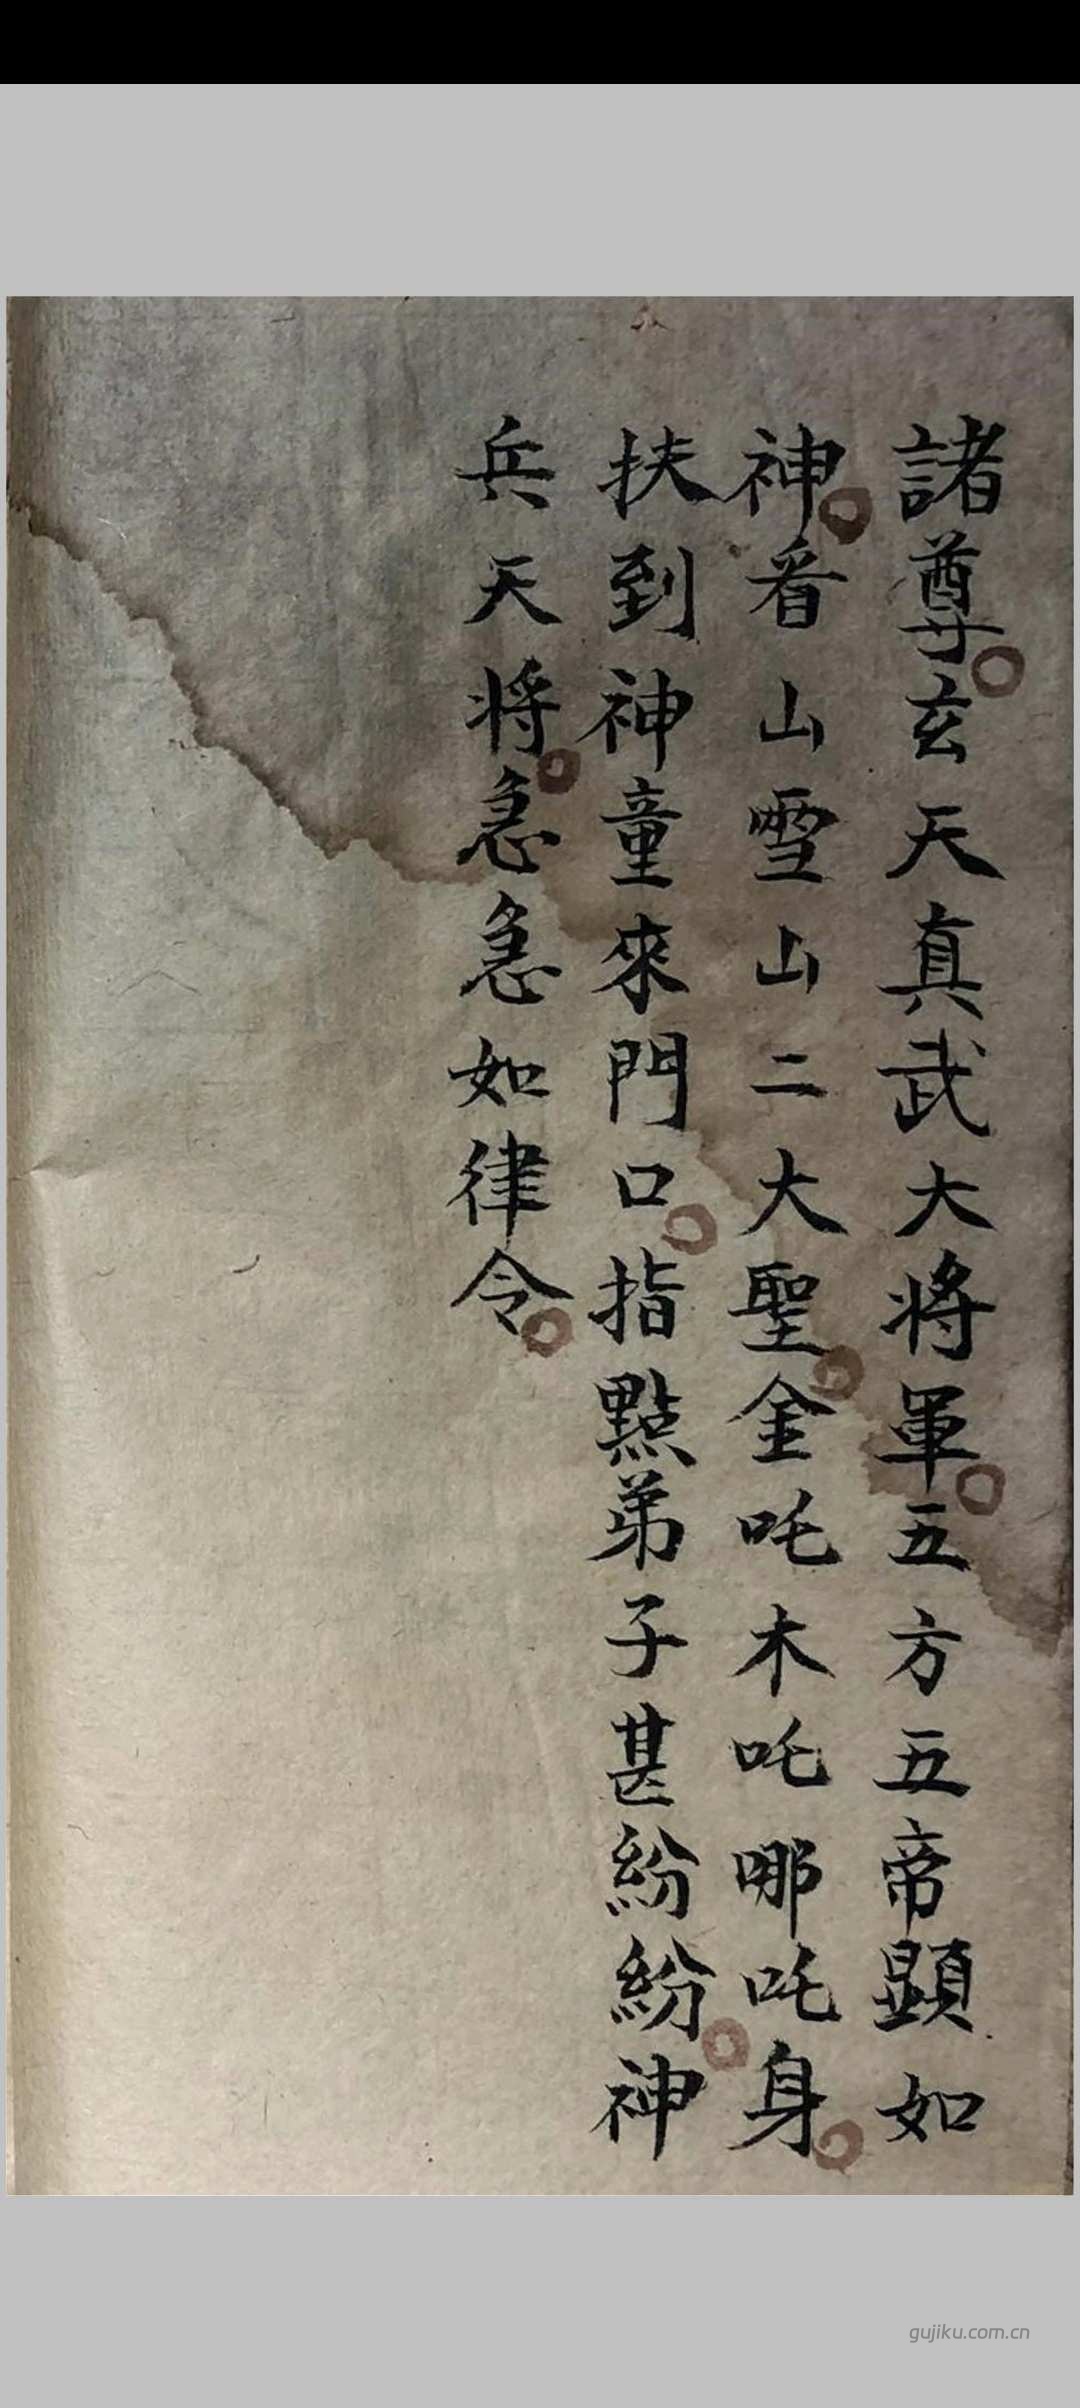 諸尊玄天真武大將軍五方五帝顕如
神看山雪山二大聖金吒木吒哪吒身
扶到神童來門口指點弟子甚紛紛神
兵天将急急如律令
gujiku.com.cn